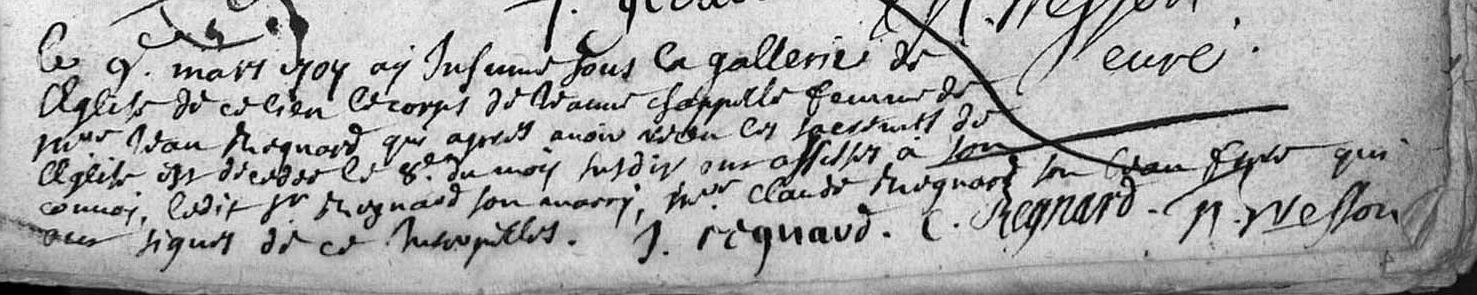 N. Wesson
le 9e. mars ay Inhumé sous la gallerie de
curé.
lEglise de ce lieu le corps de Jeanne chappelle femme de
mre Jean Regnard qui apres avoir receu les sacremts de
lEglise est decedee le 8e. du mois susdit ont assistes a son
convoi, ledit sr Regnard son marry, mre. Claude Regnard son beau frere qui
ont signes de ce Interpelles. J. regnard. C. Regnard. N. Wesson